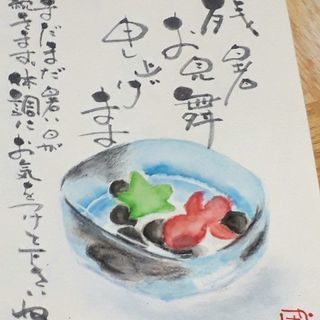 残暑
お見舞
申し上げ
ます
まだまだ暑い日が
続きます。体調に お気をつけ下さいね